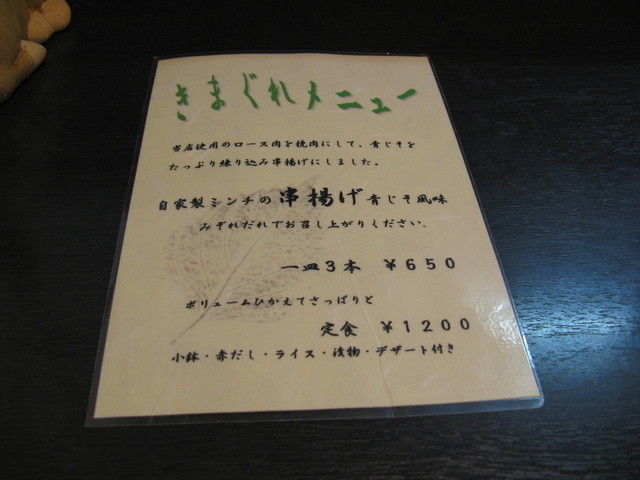 きまぐれメニュー
当店使用のロース肉を挽肉にして、青じそを
たっぷり練り込み串揚げにしました。
自家製ミンチの串揚げ青じそ風味
みぞれだれでお召し上がりください。
一皿3本 ¥650
ボリュームひかえてさっぱりと
定食 ¥1200
小鉢・赤だし・ライス・漬物・デザート付き